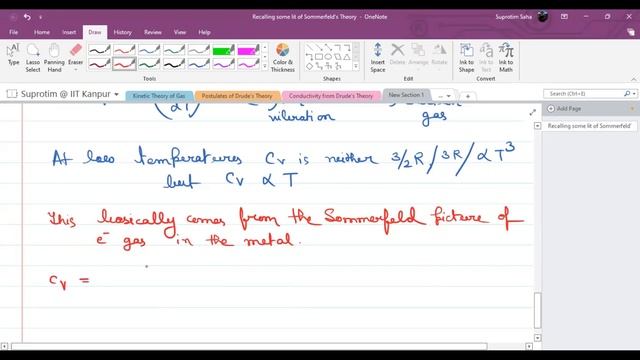 Recalling some lit of Sommerfeld's Theory - OneNote
Suprotim Saha
File Home Insert Draw View Help
Tools
Color & Thickness
Shapes
Insert Shapes
Arrange
Edit
Ink to Shape
Ink to Text
Ink to Math
Convert
Suprotim @ IIT Kanpur
Kinetic Theory of Gas
Postulates of Drude's Theory
Conductivity from Drude's Theory
New Section 1
Search (Ctrl+E)
Add Page
Recalling some lit of Sommerfeld'
vibration gas
At low temperatures Cv is neither 3/2R/3R/αT³
but Cv α T
This basically comes from the Sommerfeld picture of
e⁻ gas in the metal.
Cv =